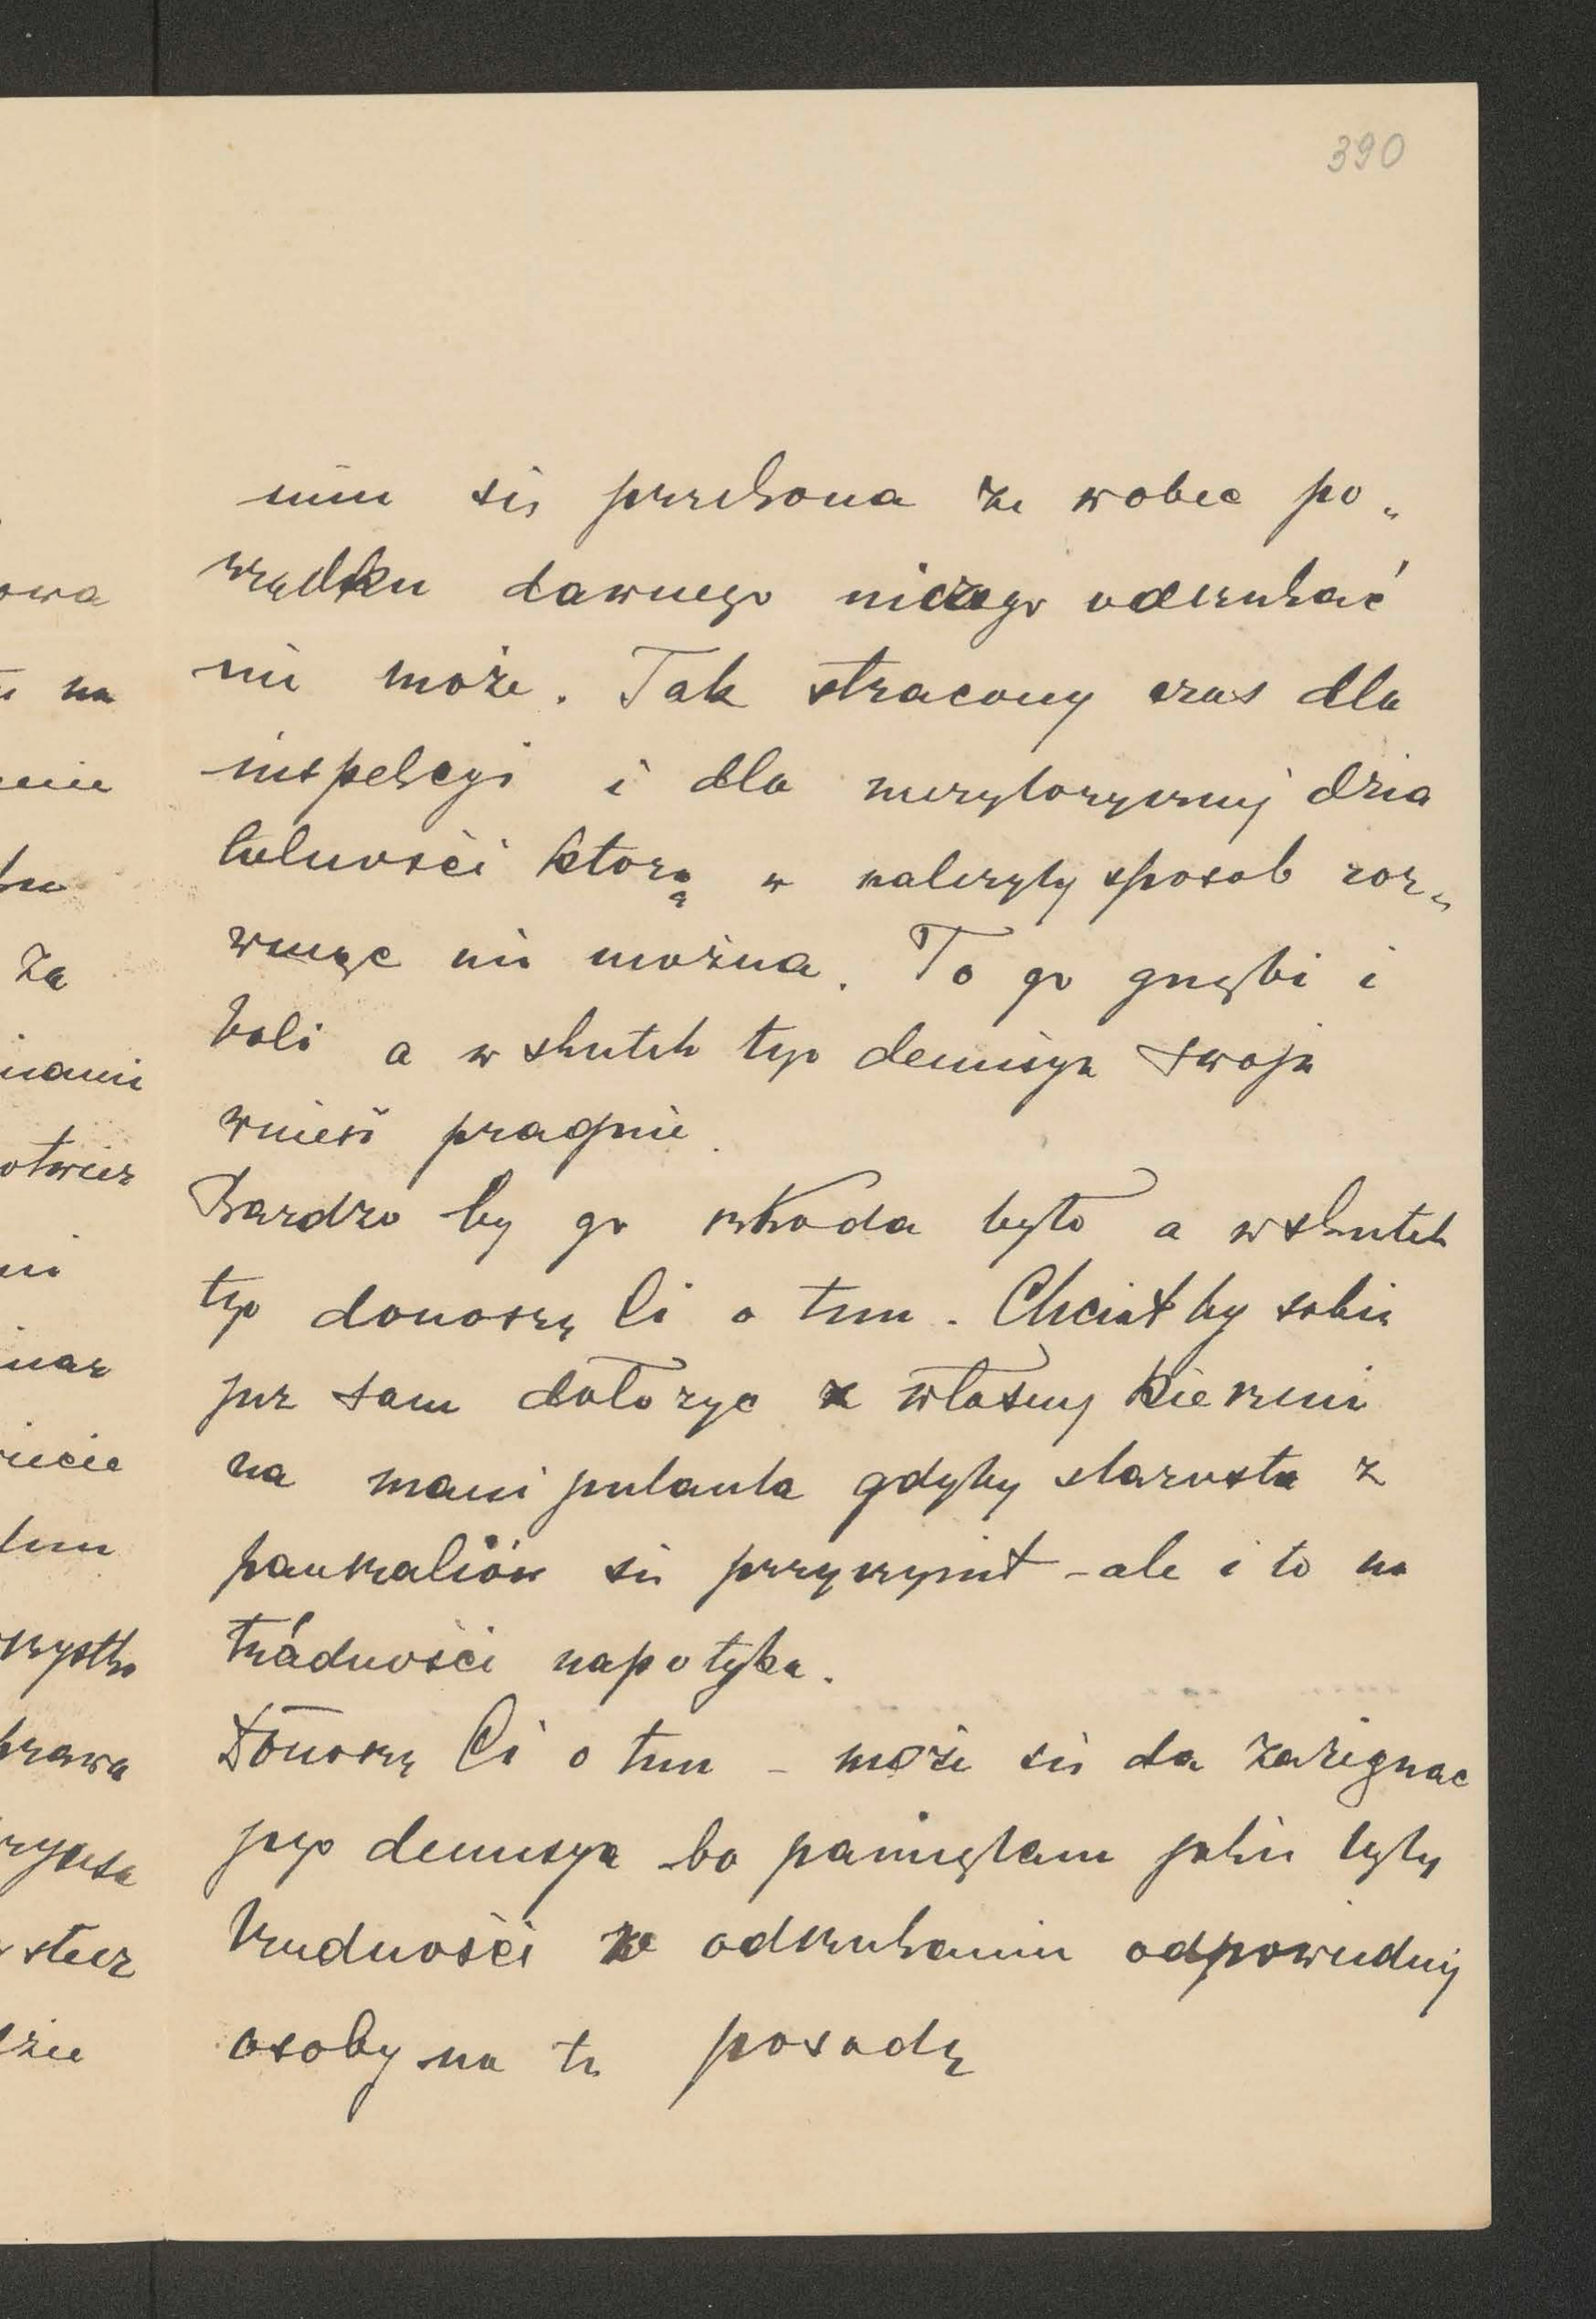 390
nim się przekona że wobec po„
rządku dawnego niczego odszukać
nie może. Tak stracony czas dla
inspekcyi i dla merytorycznej dzia
łalności którą w należyty sposób roz„
winąć nie można. To go gnębi i
boli a wskutek tego demisyę swoję
wnieść pragnie.
Bardzo by go szkoda było a wskutek
tego donoszę Ci o tem. Chciałby sobie
już sam dołożyć z własnej kieszeni
na manipulanta gdyby starosta z
pauszaliów się przyczynił - ale i to na
trudności napotyka.
Donoszę Ci o tem - może się da zażegnać
jego demisya bo pamiętam jakie były
trudności w odszukaniu odpowiedniej
osoby na tę posadę
owa
na
nie
za
otwier
mar
prawa